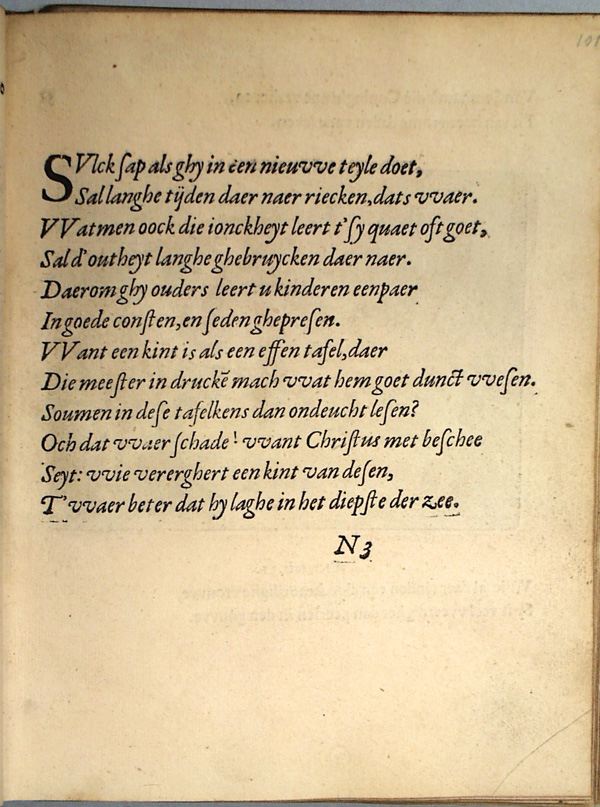 101
SVlck sap als ghy in een nieuvve teyle doet,
Sal langhe tijden daer naer riecken, dats vvaer.
VVatmen oock die ionckheyt leert t'sy quaet oft goet,
Sal d'outheyt langhe ghebruycken daer naer.
Daerom ghy ouders leert u kinderen eenpaer
In goede consten, en seden ghepresen.
VVant een kint is als een effen tafel, daer
Die meester in druckē mach vvat hem goet dunct vvesen.
Soumen in dese tafelkens dan ondeucht lesen?
Och dat vvaer schade! vvant Christus met beschee
Seyt: vvie vererghert een kint van desen,
T'vvaer beter dat hy laghe in het diepste der zee.
N3